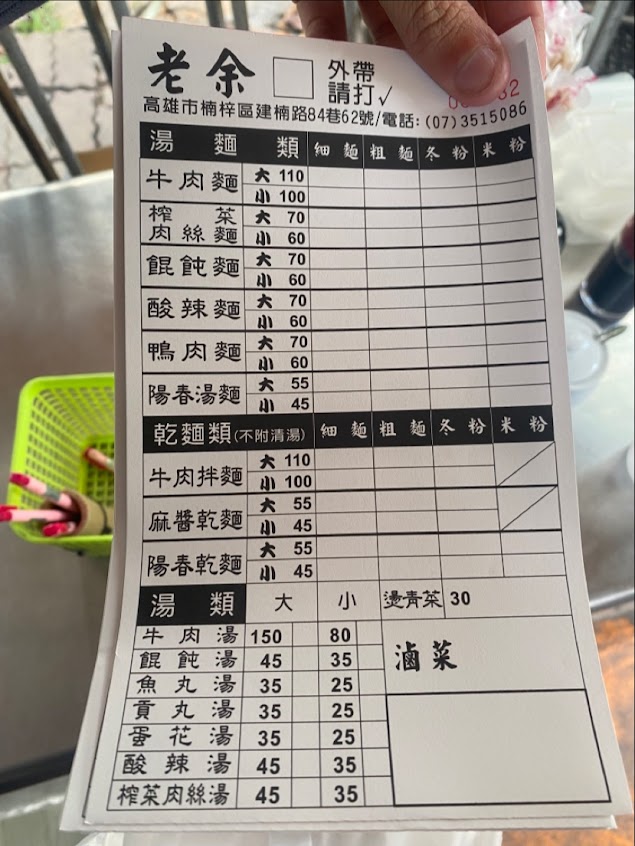 老余 外帶
請打✓
高雄市楠梓區建楠路84巷62號/電話:(07)3515086
湯麵類 細麵 粗麵 冬粉 米粉
牛肉麵 大 110
小 100
榨菜肉絲麵 大 70
小 60
餛飩麵 大 70
小 60
酸辣麵 大 70
小 60
鴨肉麵 大 70
小 60
陽春湯麵 大 55
小 45
乾麵類(不附清湯) 細麵 粗麵 冬粉 米粉
牛肉拌麵 大 110
小 100
麻醬乾麵 大 55
小 45
陽春乾麵 大 55
小 45
湯類 大 小 燙青菜 30
牛肉湯 150 80
餛飩湯 45 35
滷菜
魚丸湯 35 25
貢丸湯 35 25
蛋花湯 35 25
酸辣湯 45 35
榨菜肉絲湯 45 35